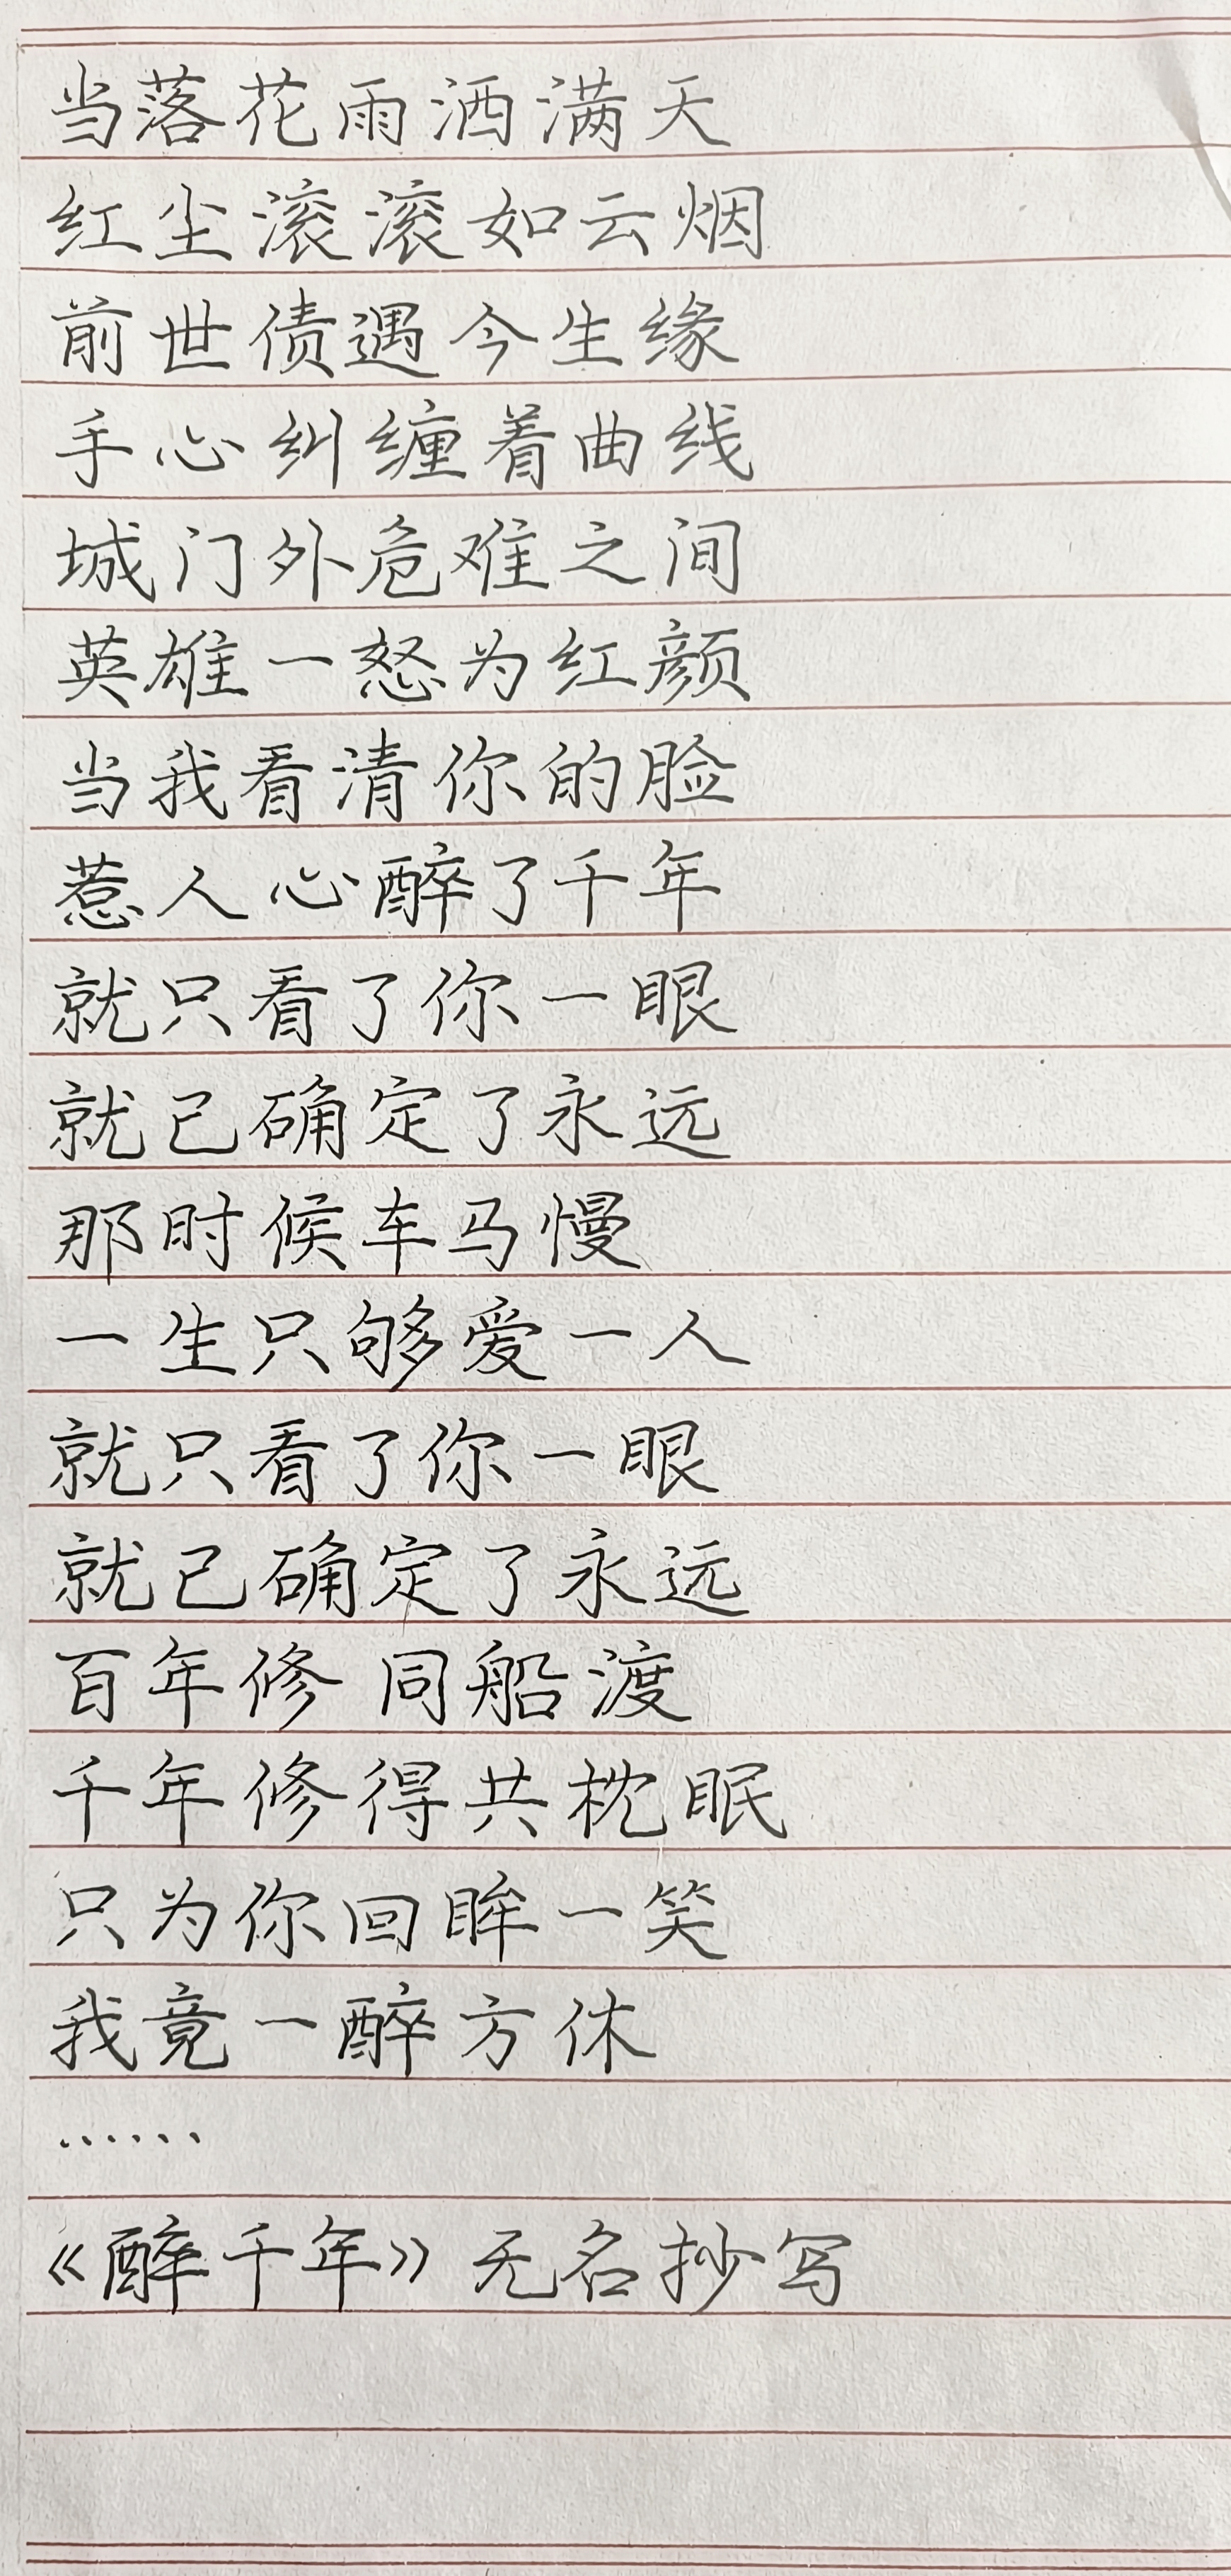 当落花雨洒满天
红尘滚滚如云烟
前世债遇今生缘
手心纠缠着曲线
城门外危难之间
英雄一怒为红颜
当我看清你的脸
惹人心醉了千年
就只看了你一眼
就已确定了永远
那时候车马慢
一生只够爱一人
就只看了你一眼
就已确定了永远
百年修 同船渡
千年修得共枕眠
只为你回眸一笑
我竟一醉方休
……
《醉千年》无名抄写